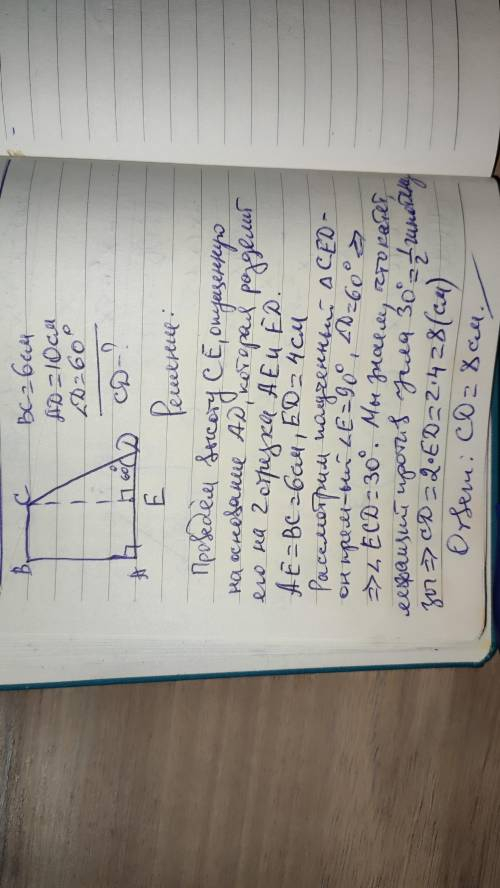 BC=6см
AD=10см
∠D=60°
CD-?
B C
A E D
60°
Решение:
Проведём высоту CE, опущенную
на основание AD, которая разделит
его на 2 отрезка AE и ED.
AE=BC=6см, ED=4см
Рассмотрим полученный △CED-
он прям-ый ∠E=90°, ∠D=60° ⇒
⇒ ∠ECD=30°. Мы знаем, что катет
лежащий против угла 30°=1/2 гипотену
зы ⇒ CD=2•ED=2•4=8(см)
Ответ: CD=8см.